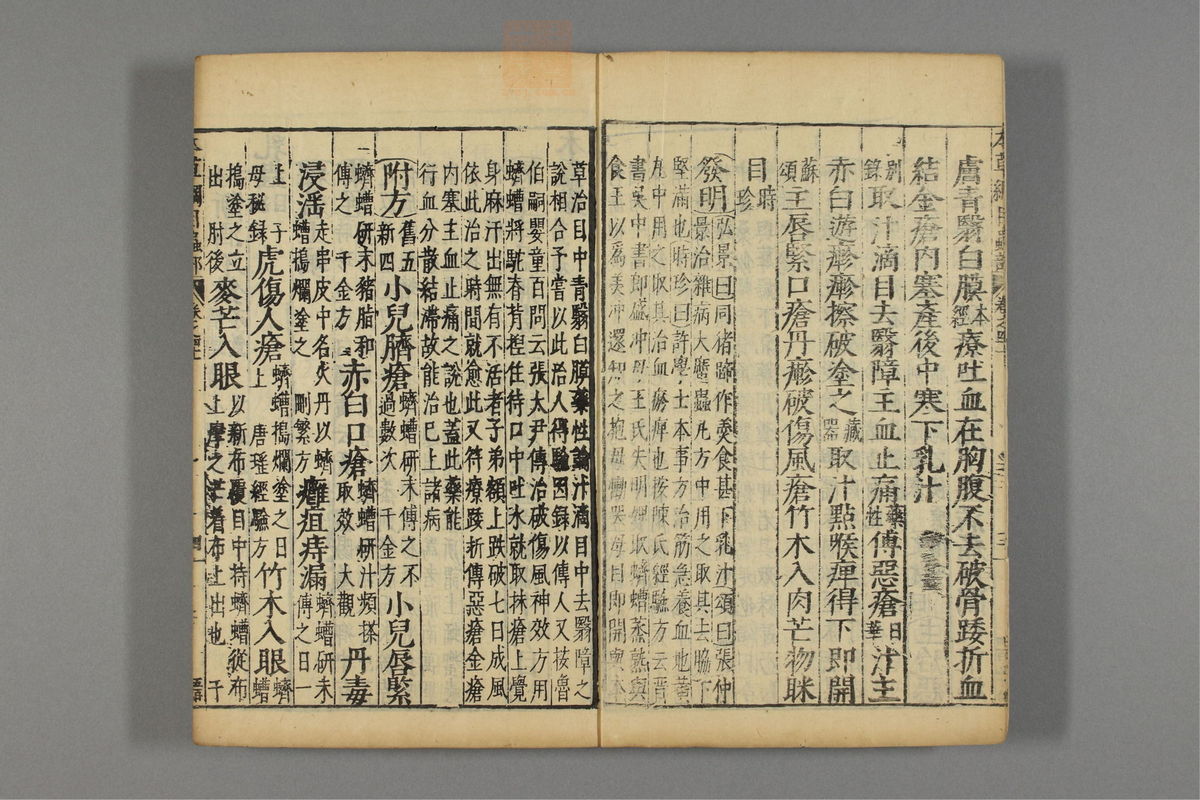 膚青翳白膜本經療吐血在胸腹不去破骨踒折血
結金瘡內塞產後中寒下乳汁
別錄取汁滴目去翳障主血止痛藥性傅惡瘡日華汁主
赤白遊瘮瘮擦破塗之藏器取汁點喉痺得下即開
蘇頌主唇緊口瘡丹瘮破傷風瘡竹木入肉芒物眯
目時珍
發明弘景曰同猪蹄作羹食甚下乳汁頌曰張仲
景治雜病大䗪蟲丸方中用之取其去脇下
堅滿也時珍曰許學士本事方治筋急養血地黃
丸中用之取其治血瘀痺也按陳氏經驗方云晋
書吳中書郎盛冲母王氏失明婢取蠐螬蒸熟與
食王以爲美冲還知之抱母慟哭母目即開與本
草治目中青翳白膜藥性論汁滴目中去翳障之
說相合予嘗以此治人得驗因錄以傳人又按魯
伯嗣嬰童百問云張太尹傳治破傷風神效方用
蠐螬將駝脊背揑住待口中吐水就取抹瘡上覺
身麻汗出無有不活者子弟額上跌破七日成風
依此治之時間就愈此又符療踒折傅惡瘡金瘡
內塞主血止痛之說也蓋此藥能
行血分散結滯故能治已上諸病
附方舊五新四小兒臍瘡蠐螬研末傅之不過數次千金方小兒唇緊
蠐螬研末豬脂和傅之千金方赤白口瘡蠐螬研汁頻搽取效大觀丹毒
浸淫走串皮中名火丹以蠐螬搗爛塗之刪繁方癰疽痔漏蠐螬研末傅之日一
上子母秘録虎傷人瘡蠐螬搗爛塗之日上唐瑶經驗方竹木入眼蠐螬
搗塗之立出肘後麥芒入眼以新布覆目中持蠐螬從布上摩之芒着布上出也千